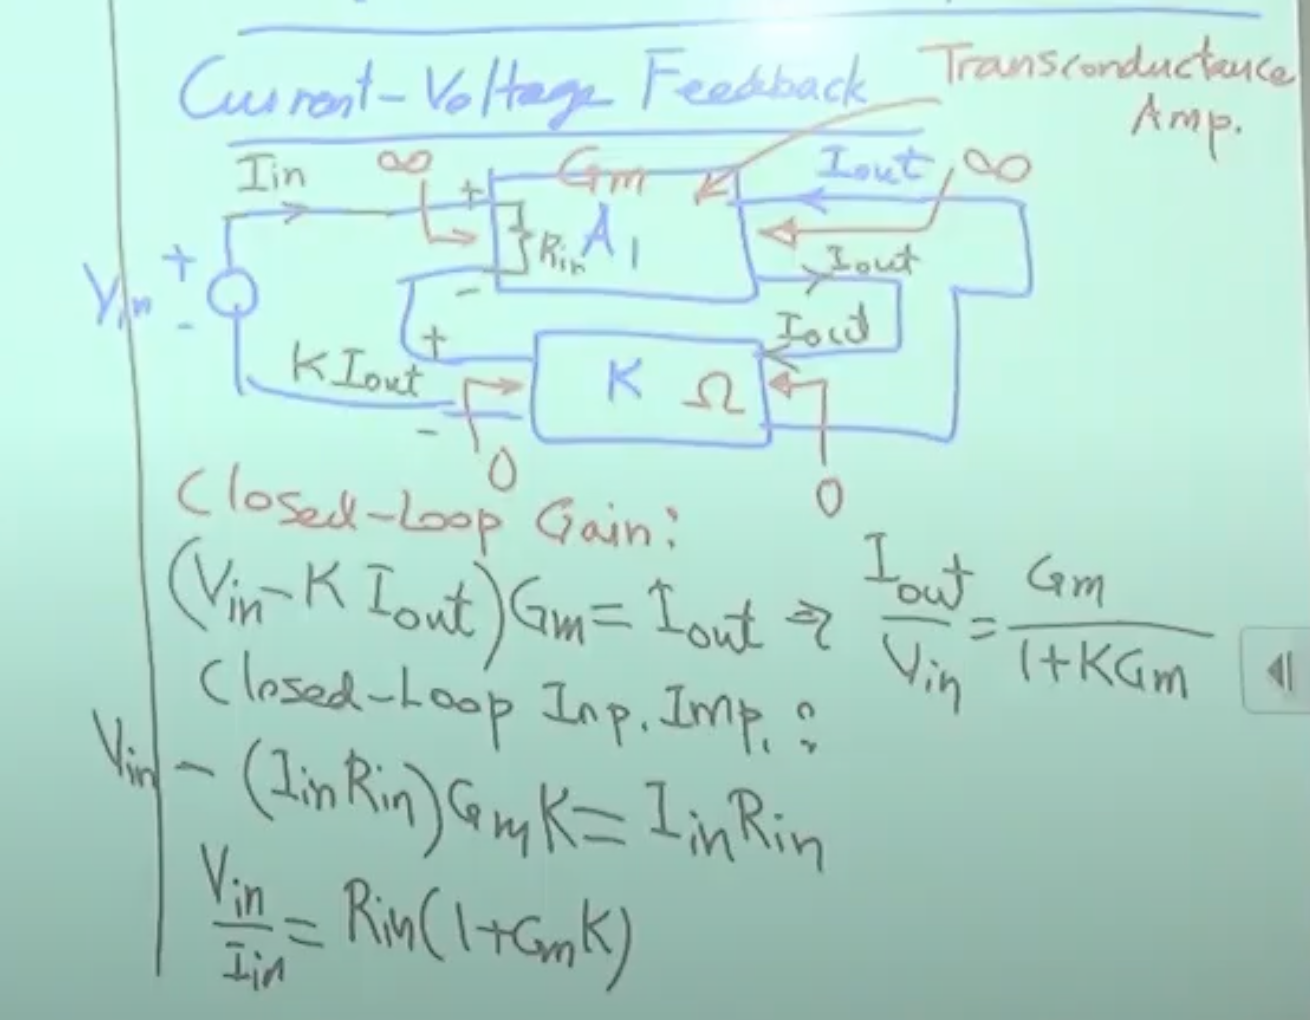 Current-Voltage Feedback
Transconductance
Amp.
Iin
∞
Gm
Iout
∞
+
Rin
A1
Iout
Vin
+
-
-
Iout
+
K Iout
K Ω
-
0
0
Closed-Loop Gain:
(Vin - K Iout) Gm = Iout ⇒ Iout/Vin = Gm/(1+KGm)
Closed-Loop Inp. Imp. :
Vin - (Iin Rin) Gm K = Iin Rin
Vin/Iin = Rin (1+Gm K)